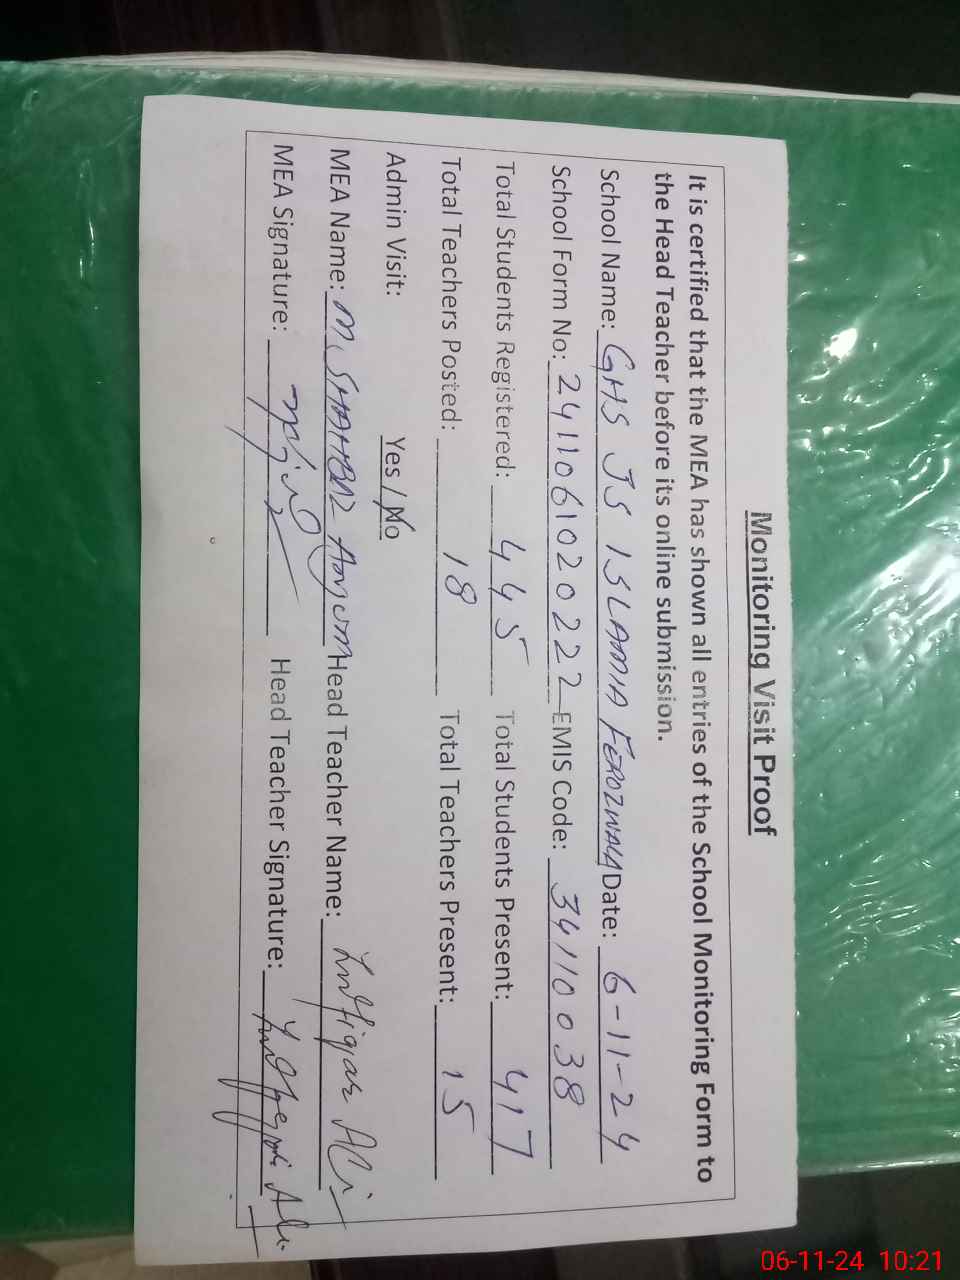 Monitoring Visit Proof
It is certified that the MEA has shown all entries of the School Monitoring Form to
the Head Teacher before its online submission.
School Name: GHS JS ISLAMIA FEROZWALA Date: 6-11-24
School Form No: 241106102022 2 EMIS Code: 34110038
Total Students Registered: 445 Total Students Present: 417
Total Teachers Posted: 18 Total Teachers Present: 15
Admin Visit: Yes / No
MEA Name: M. SHAHBAZ Anjum Head Teacher Name: Intiqar Ali
MEA Signature: Head Teacher Signature: Ali
06-11-24 10:21